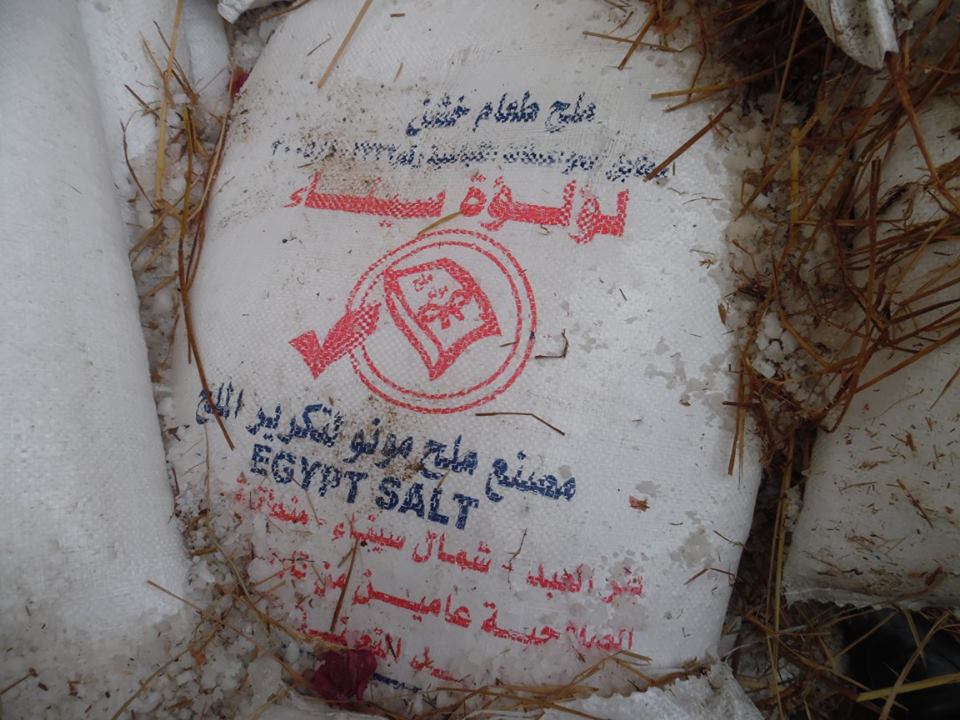 ملح طعام خشن
مطابق للمواصفات القياسية رقم
لؤلؤة سيناء
ملح
مصنع ملح مونو لتكرير الملح
EGYPT SALT
بئر العبد - شمال سيناء -
الصلاحية عامين من